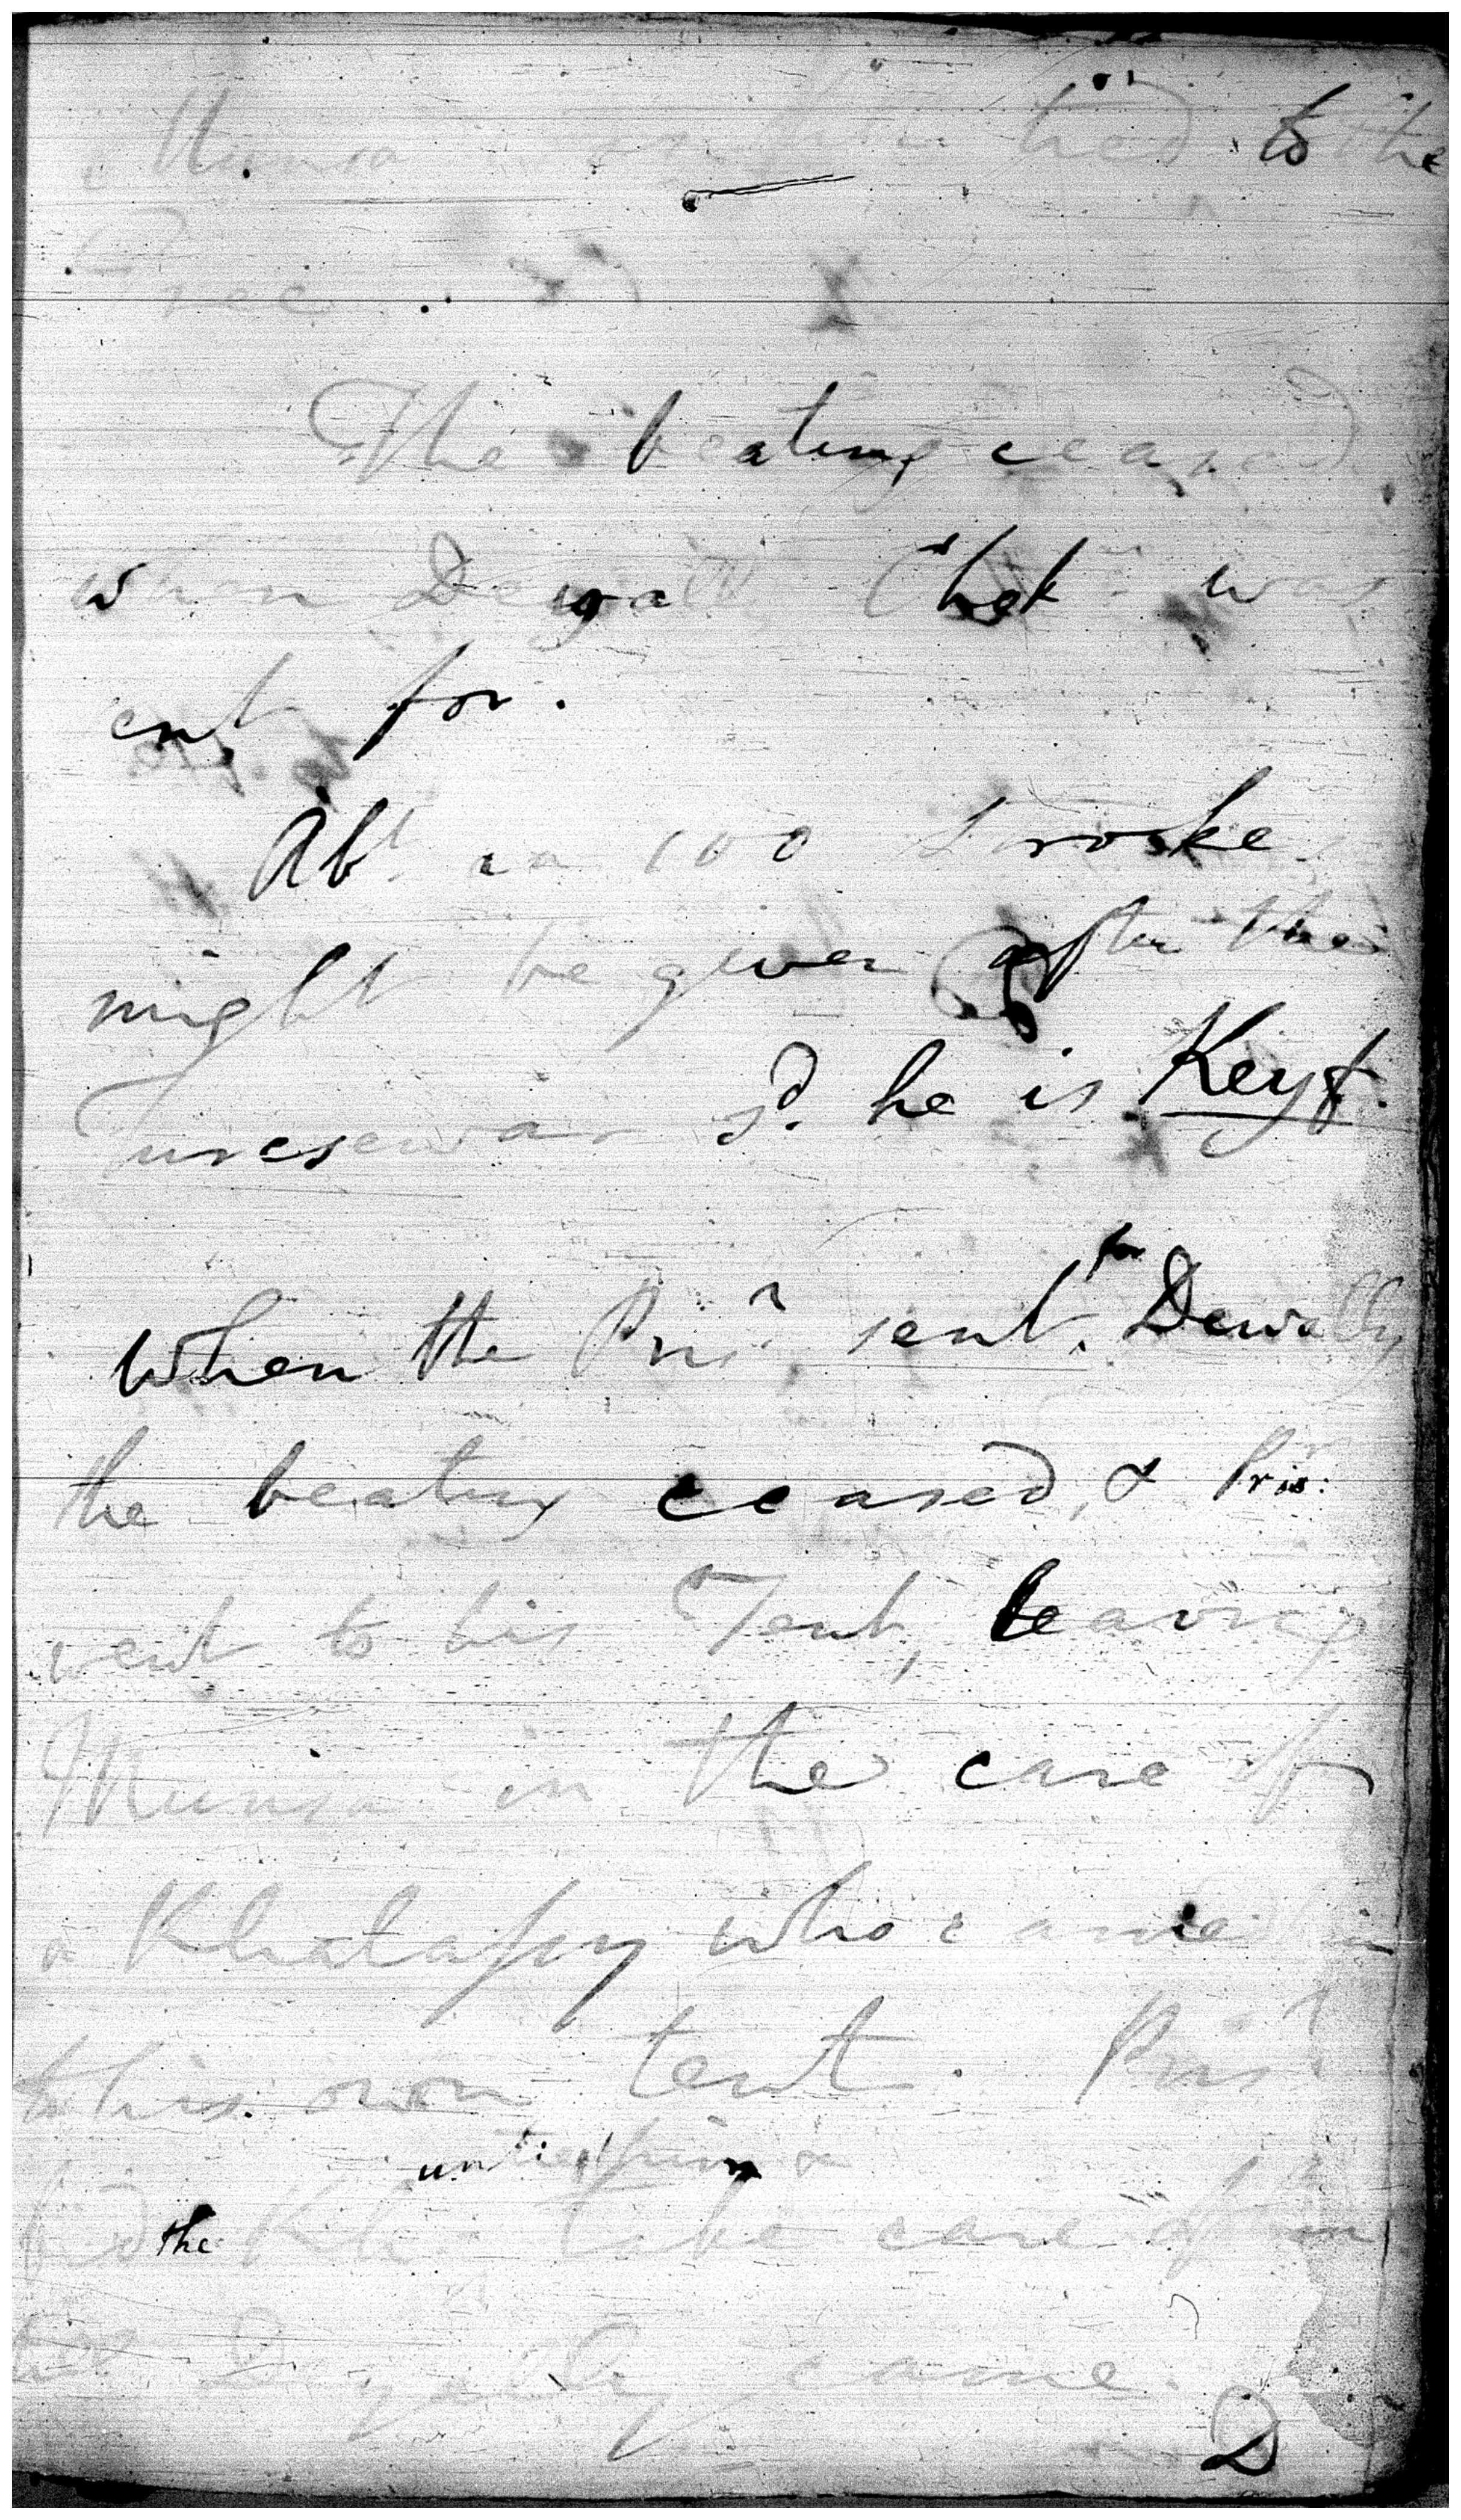 Munsa tied to the
Tree.
The beating ceased
when Deyally Chok was
sent for.
Abt. a 100 strokes
might be given after the
Turesewar sd. he is Keyt.
when the Prisr. sent for Dewally
the beating ceased, & Prisr:
went to his Tent, leaving
Munsa in the care of
a Khalassy who came in
to his own tent. Prisr.
untied him &
bid the Kh. take care of him
till Deyally came.
D